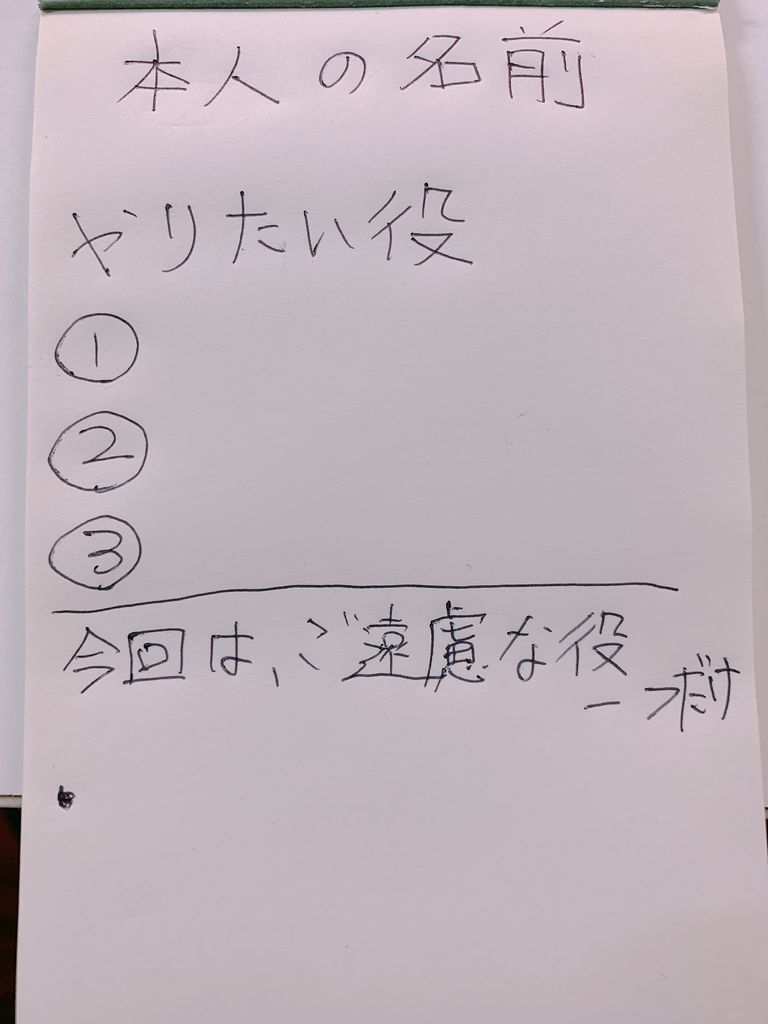 本人の名前
やりたい役
①
②
③
今回は、ご遠慮な役
一つだけ
・